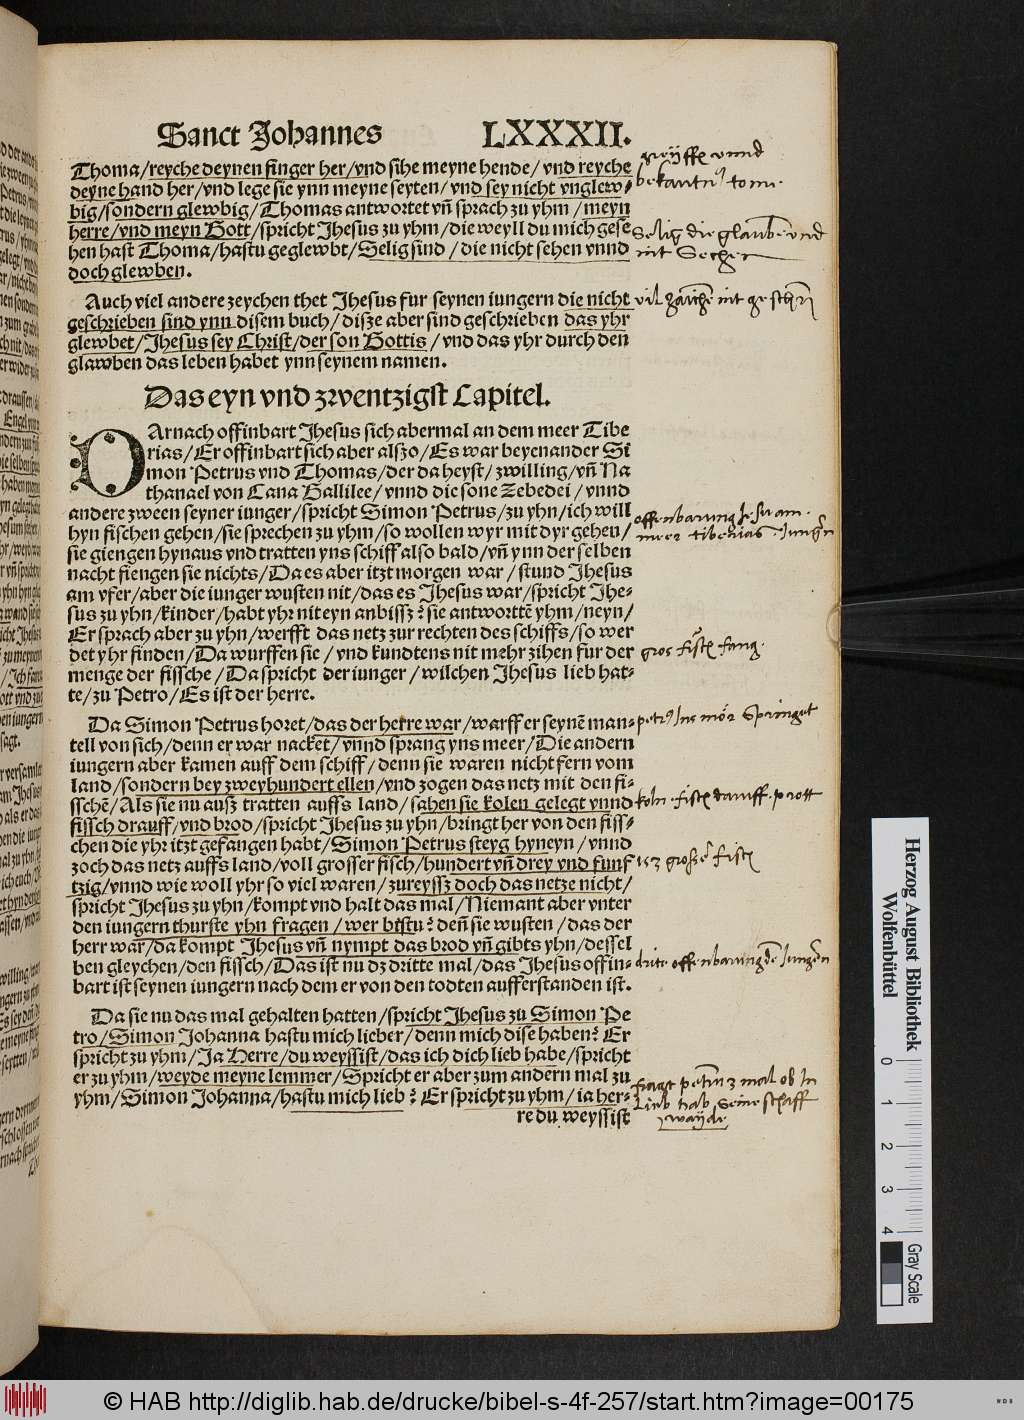 Sanct Johannes LXXXII.
Thoma/reyche deynen finger her/vnd sihe meyne hende/vnd reyche
deyne hand her/vnd lege sie ynn meyne seyten/vnd sey nicht vnglew-
big/sondern glewbig/Thomas antwortet vñ sprach zu yhm/meyn
herre/vnd meyn Gott/spricht Jhesus zu yhm/die weyll du mich gese
hen hast Thoma/hastu geglewbt/Selig sind/die nicht sehen vnnd
doch glewben.
Auch viel andere zeychen thet Jhesus fur seynen iungern die nicht
geschrieben sind ynn disem buch/disze aber sind geschrieben das yhr
glewbet/Jhesus sey Christ/der son Gottis/vnd das yhr durch den
glawben das leben habet ynn seynem namen.
Das eyn vnd zwentzigst Capitel.
DArnach offinbart Jhesus sich abermal an dem meer Tibe
rias/Er offinbart sich aber alszo/Es war beyenander Si
mon Petrus vnd Thomas/der da heyst/zwilling/vñ Na
thanael von Cana Gallilee/vnnd die sone Zebedei/vnnd
andere zween seyner iunger/spricht Simon Petrus/zu yhn/ich will
hyn fischen gehen/sie sprechen zu yhm/so wollen wyr mit dyr gehen/
sie giengen hynaus vnd tratten yns schiff also bald/vñ ynn der selben
nacht fiengen sie nichts/Da es aber itzt morgen war/stund Jhesus
am vfer/aber die iunger wusten nit/das es Jhesus war/spricht Jhe-
sus zu yhn/kinder/habt yhr nit eyn anbissz? sie antworttē yhm/neyn/
Er sprach aber zu yhn/werfft das netz zur rechten des schiffs/so wer
det yhr finden/Da wurffen sie/vnd kundtens nit mehr zihen fur der
menge der fissche/Da spricht der iunger/wilchen Jhesus lieb hat-
te/zu Petro/Es ist der herre.
Da Simon Petrus horet/das der herre war/warff er seynē man-
tell von sich/denn er war nacket/vnnd sprang yns meer/Die andern
iungern aber kamen auff dem schiff/denn sie waren nicht fern vom
land/sondern bey zweyhundert ellen/vnd zogen das netz mit den fi-
sschē/Als sie nu ausz tratten auffs land/sahen sie kolen gelegt vnnd
fissch drauff/vnd brod/spricht Jhesus zu yhn/bringt her von den fiss-
chen die yhr itzt gefangen habt/Simon Petrus steyg hyneyn/vnnd
zoch das netz auffs land/voll grosser fisch/hundert vñ drey vnd funf
tzig/vnnd wie woll yhr so viel waren/zureyssz doch das netze nicht/
spricht Jhesus zu yhn/kompt vnd halt das mal/Niemant aber vnter
den iungern thurste yhn fragen/wer bistu? deñ sie wusten/das der
herr war/da kompt Jhesus vñ nympt das brod vñ gibts yhn/dessel
ben gleychen/den fissch/Das ist nu dz dritte mal/das Jhesus offin-
bart ist seynen iungern nach dem er von den todten aufferstanden ist.
Da sie nu das mal gehalten hatten/spricht Jhesus zu Simon Pe
tro/Simon Johanna hastu mich lieber/denn mich dise haben? Er
spricht zu yhm/Ja Herre/du weyssist/das ich dich lieb habe/spricht
er zu yhm/weyde meyne lemmer/Spricht er aber zum andern mal zu
yhm/Simon Johanna/hastu mich lieb? Er spricht zu yhm/ia her-
re du weyssist
Selig die glauben vnd
nit Sechen
offenbarung Jesu am
meer tiberias
gros fisch fang.
153 grosse fisch
drite offenbarung
fragt petrum 3 mal ob In
Lieb hab seine schaff
Herzog August Bibliothek
Wolfenbüttel
0 1 2 3 4
Gray Scale
© HAB http://diglib.hab.de/drucke/bibel-s-4f-257/start.htm?image=00175